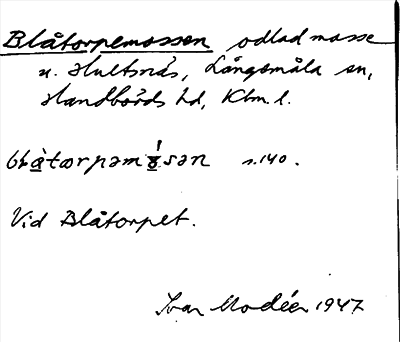 Blåtorpemossen odlad mosse
u. Hultsnäs, Långemåla sn,
Handbörds hd, Klm. l.
s. 140.
Vid Blåtorpet.
Ivar Modéer 1947